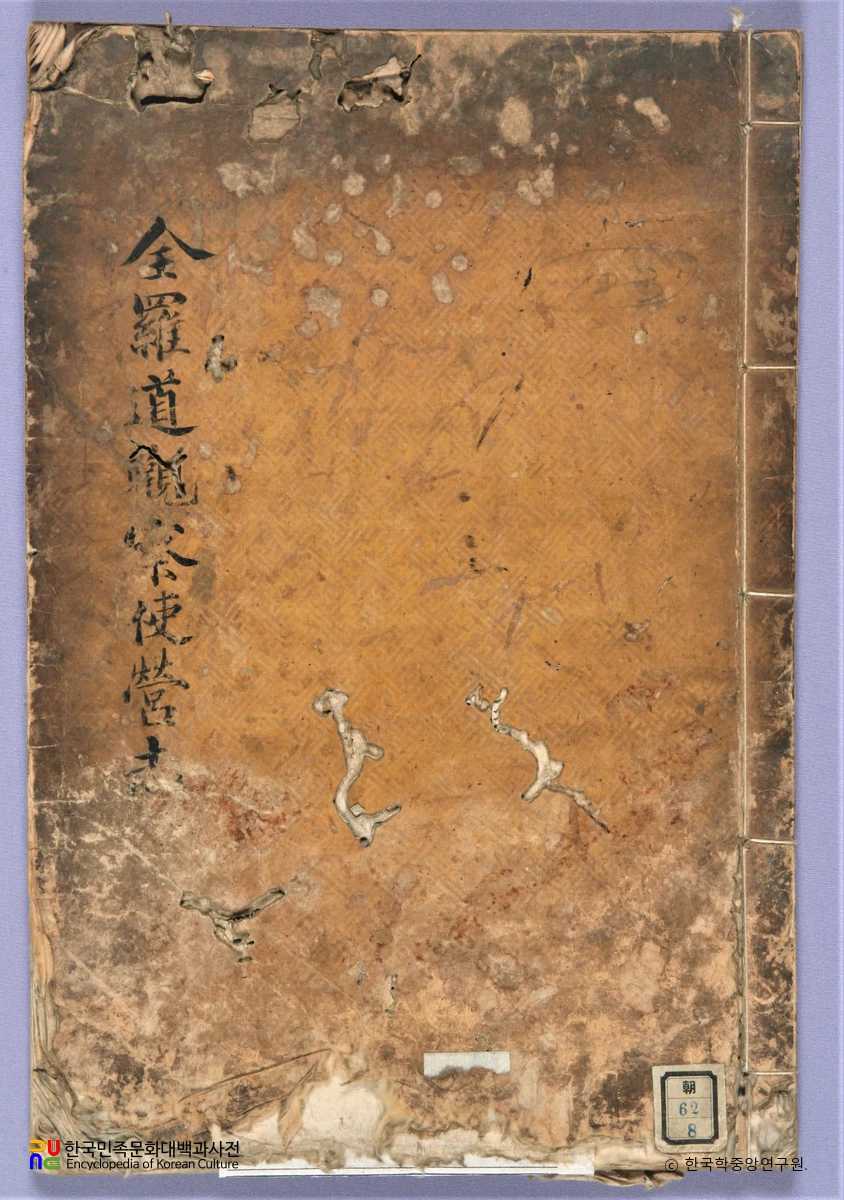 全羅道觀察使營志
朝
62
8
한국민족문화대백과사전
Encyclopedia of Korean Culture
© 한국학중앙연구원.